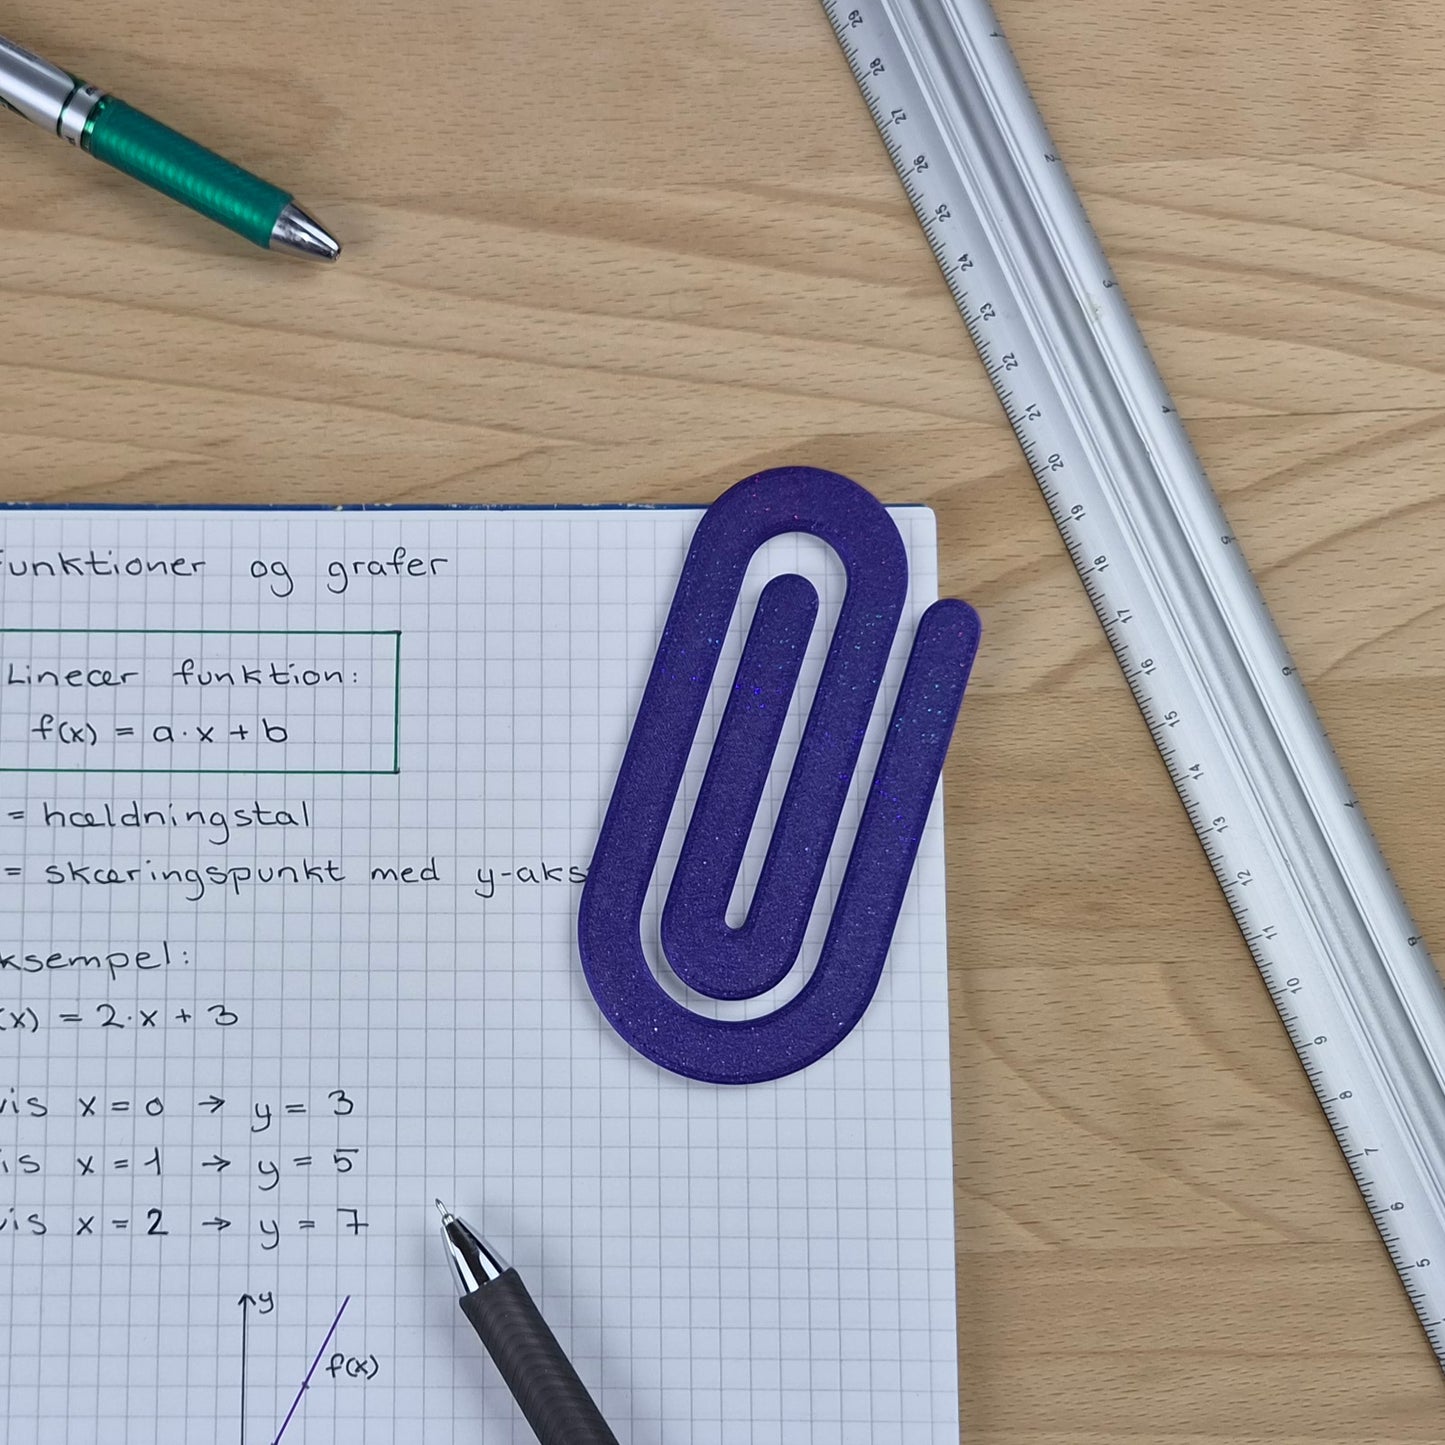 funktioner og grafer
Lineær funktion:
f(x) = a·x + b
= hældningstal
= skæringspunkt med y-aks
ksempel:
(x) = 2·x + 3
vis x = 0 → y = 3
is x = 1 → y = 5
vis x = 2 → y = 7
y
f(x)
29
28
27
26
25
24
23
22
21
20
19
18
17
16
15
14
13
12
11
10
9
8
7
6
5
1
2
3
4
5
6
7
8